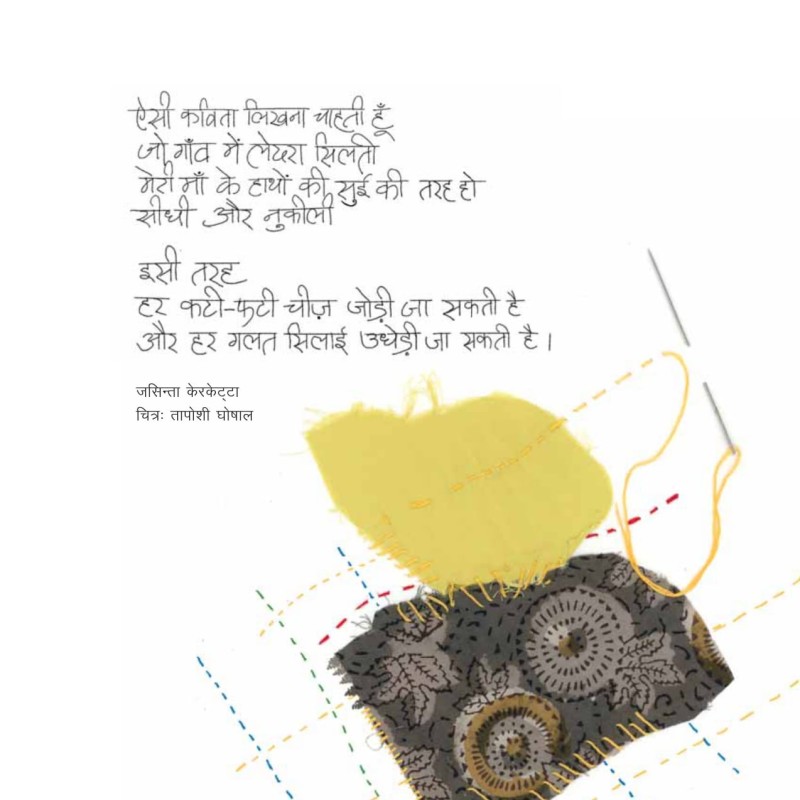 ऐसी कविता लिखना चाहती हूँ
जो गाँव में लेदरा सिलती
मेरी माँ के हाथों की सुई की तरह हो
सीधी और नुकीली
इसी तरह
हर कटी-फटी चीज़ जोड़ी जा सकती है
और हर गलत सिलाई उधेड़ी जा सकती है।
जसिन्ता केरकेट्टा
चित्रः तापोशी घोषाल